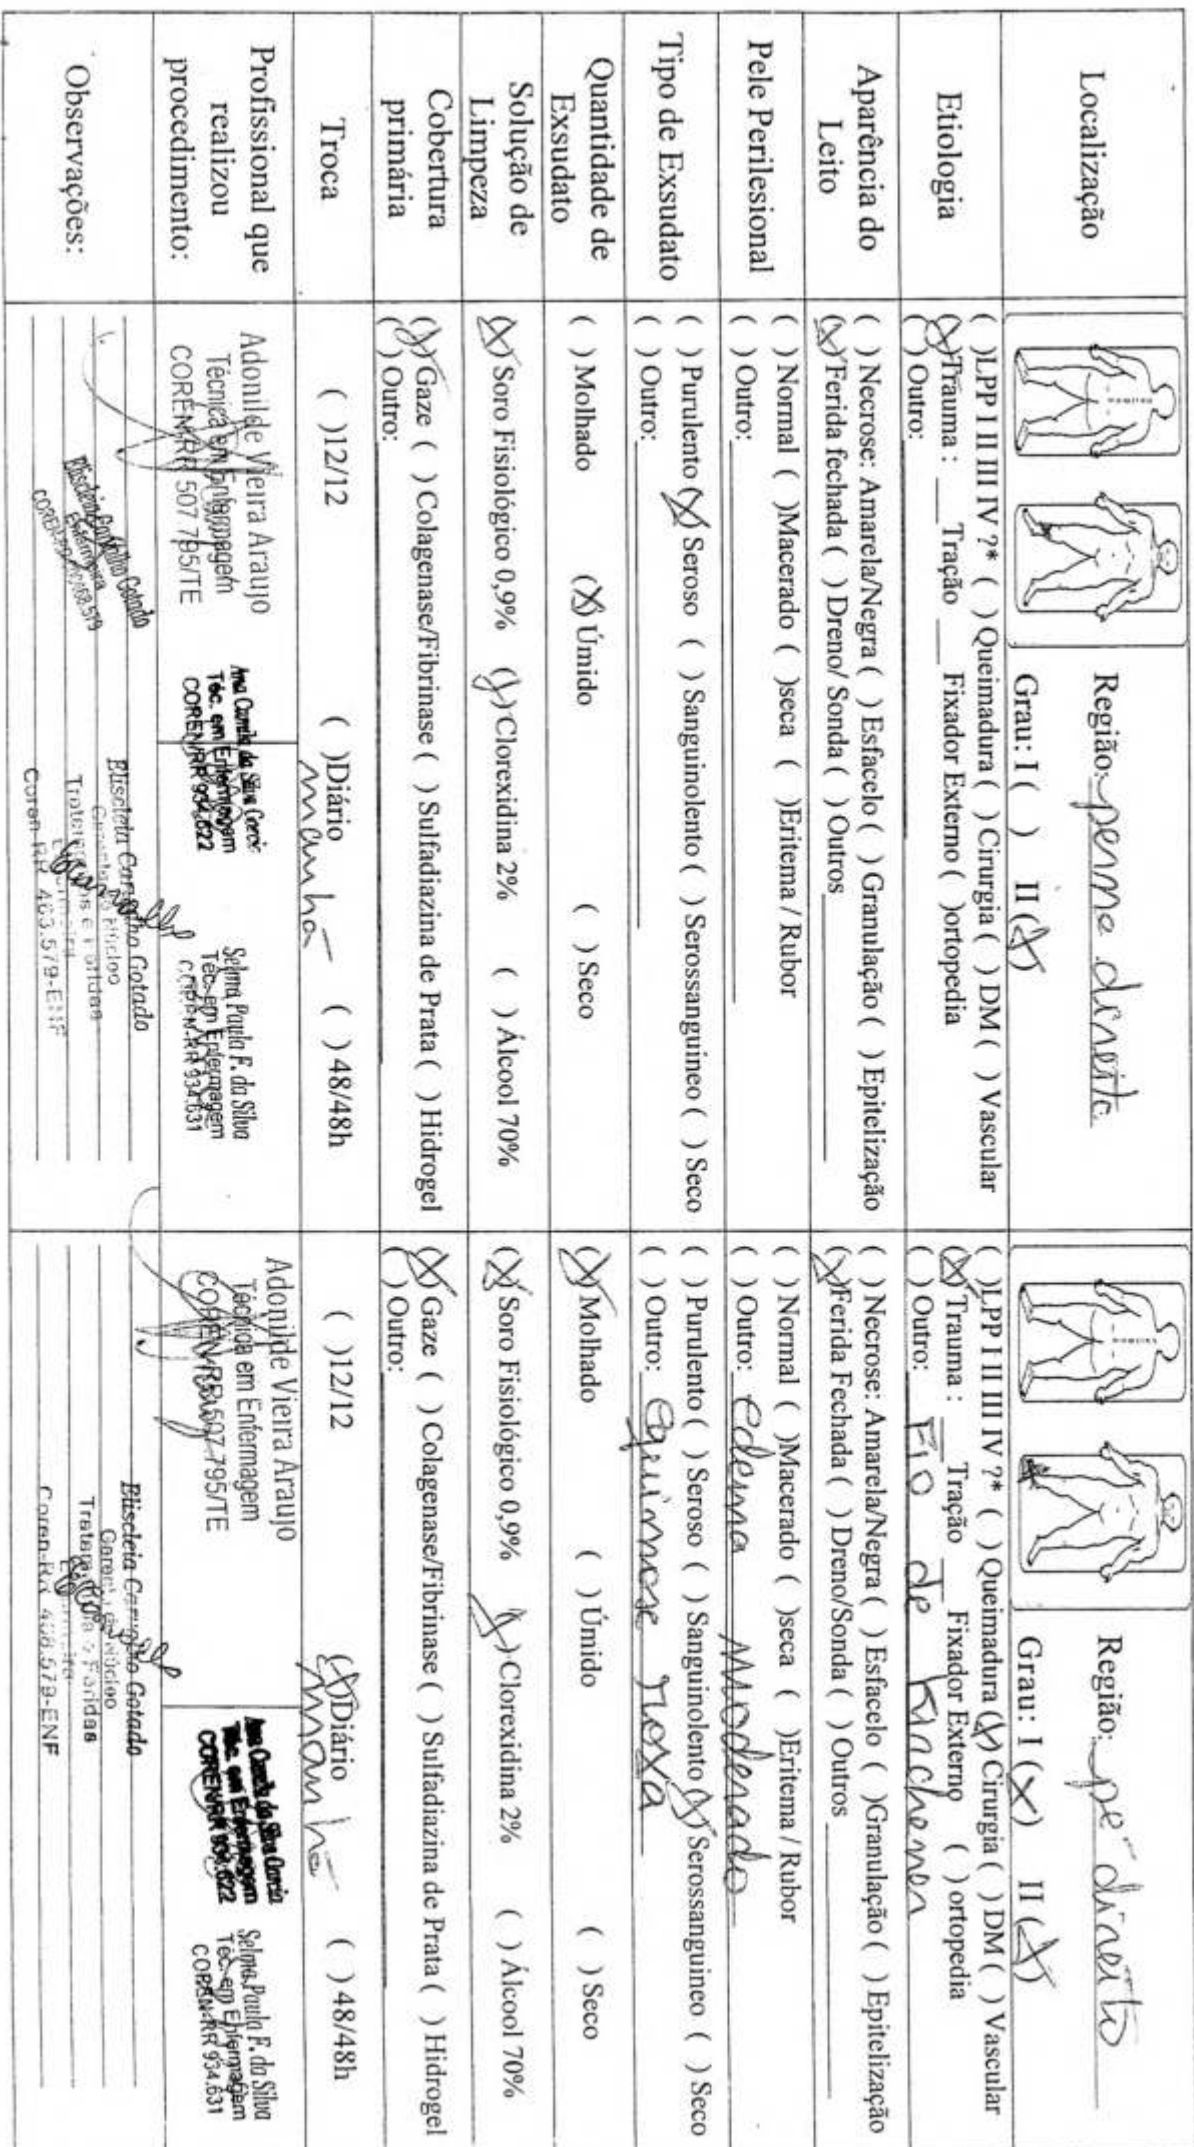 Localização
Região: perna direita
Grau: I ( ) II (X)
Região: pé direito
Grau: I (X) II (X)
Etiologia
( )LPP I II III IV ?* ( ) Queimadura ( ) Cirurgia ( ) DM ( ) Vascular
(X)Trauma : __ Tração __ Fixador Externo ( )ortopedia
( ) Outro:
( )LPP I II III IV ?* ( ) Queimadura (X) Cirurgia ( ) DM ( ) Vascular
(X)Trauma : __ Tração __ Fixador Externo ( ) ortopedia
( ) Outro: Fio de Kirchener
Aparência do
Leito
( ) Necrose: Amarela/Negra ( ) Esfacelo ( ) Granulação ( ) Epitelização
(X)Ferida fechada ( ) Dreno/ Sonda ( ) Outros
( ) Necrose: Amarela/Negra ( ) Esfacelo ( )Granulação ( ) Epitelização
(X)Ferida Fechada ( ) Dreno/Sonda ( ) Outros
Pele Perilesional
( ) Normal ( )Macerado ( )seca ( )Eritema / Rubor
( ) Outro:
( ) Normal ( )Macerado ( )seca ( )Eritema / Rubor
( ) Outro: edema Moderado
Tipo de Exsudato
( ) Purulento (X) Seroso ( ) Sanguinolento ( ) Serossanguineo ( ) Seco
( ) Outro:
( ) Purulento ( ) Seroso ( ) Sanguinolento (X) Serossanguineo ( ) Seco
( ) Outro: equimose roxa
Quantidade de
Exsudato
( ) Molhado (X) Úmido ( ) Seco
(X) Molhado ( ) Úmido ( ) Seco
Solução de
Limpeza
(X) Soro Fisiológico 0,9% (X) Clorexidina 2% ( ) Álcool 70%
(X) Soro Fisiológico 0,9% (X) Clorexidina 2% ( ) Álcool 70%
Cobertura
primária
(X) Gaze ( ) Colagenase/Fibrinase ( ) Sulfadiazina de Prata ( ) Hidrogel
( ) Outro:
(X) Gaze ( ) Colagenase/Fibrinase ( ) Sulfadiazina de Prata ( ) Hidrogel
( ) Outro:
Troca
( )12/12 ( )Diário ( ) 48/48h
manhã
( )12/12 (X)Diário ( ) 48/48h
manhã
Profissional que
realizou
procedimento:
Adonilde Vieira Araujo
Técnica em Enfermagem
COREN/RR 507.795/TE
Ana Camila da Silva Garcia
Téc. em Enfermagem
COREN/RR 934.622
Selma Paula F. da Silva
Téc. em Enfermagem
COREN-RR 934.631
Adonilde Vieira Araujo
Técnica em Enfermagem
COREN/RR 507.795/TE
Ana Camila da Silva Garcia
Téc. em Enfermagem
COREN/RR 934.622
Selma Paula F. da Silva
Téc. em Enfermagem
COREN-RR 934.631
Observações:
Eliscleia Carvalho Gotado
Enfermeira
Eliscleia Carvalho Gotado
Feridas
Coren-RR 463.579-ENF
Eliscleia Carvalho Gotado
Feridas
579-ENF